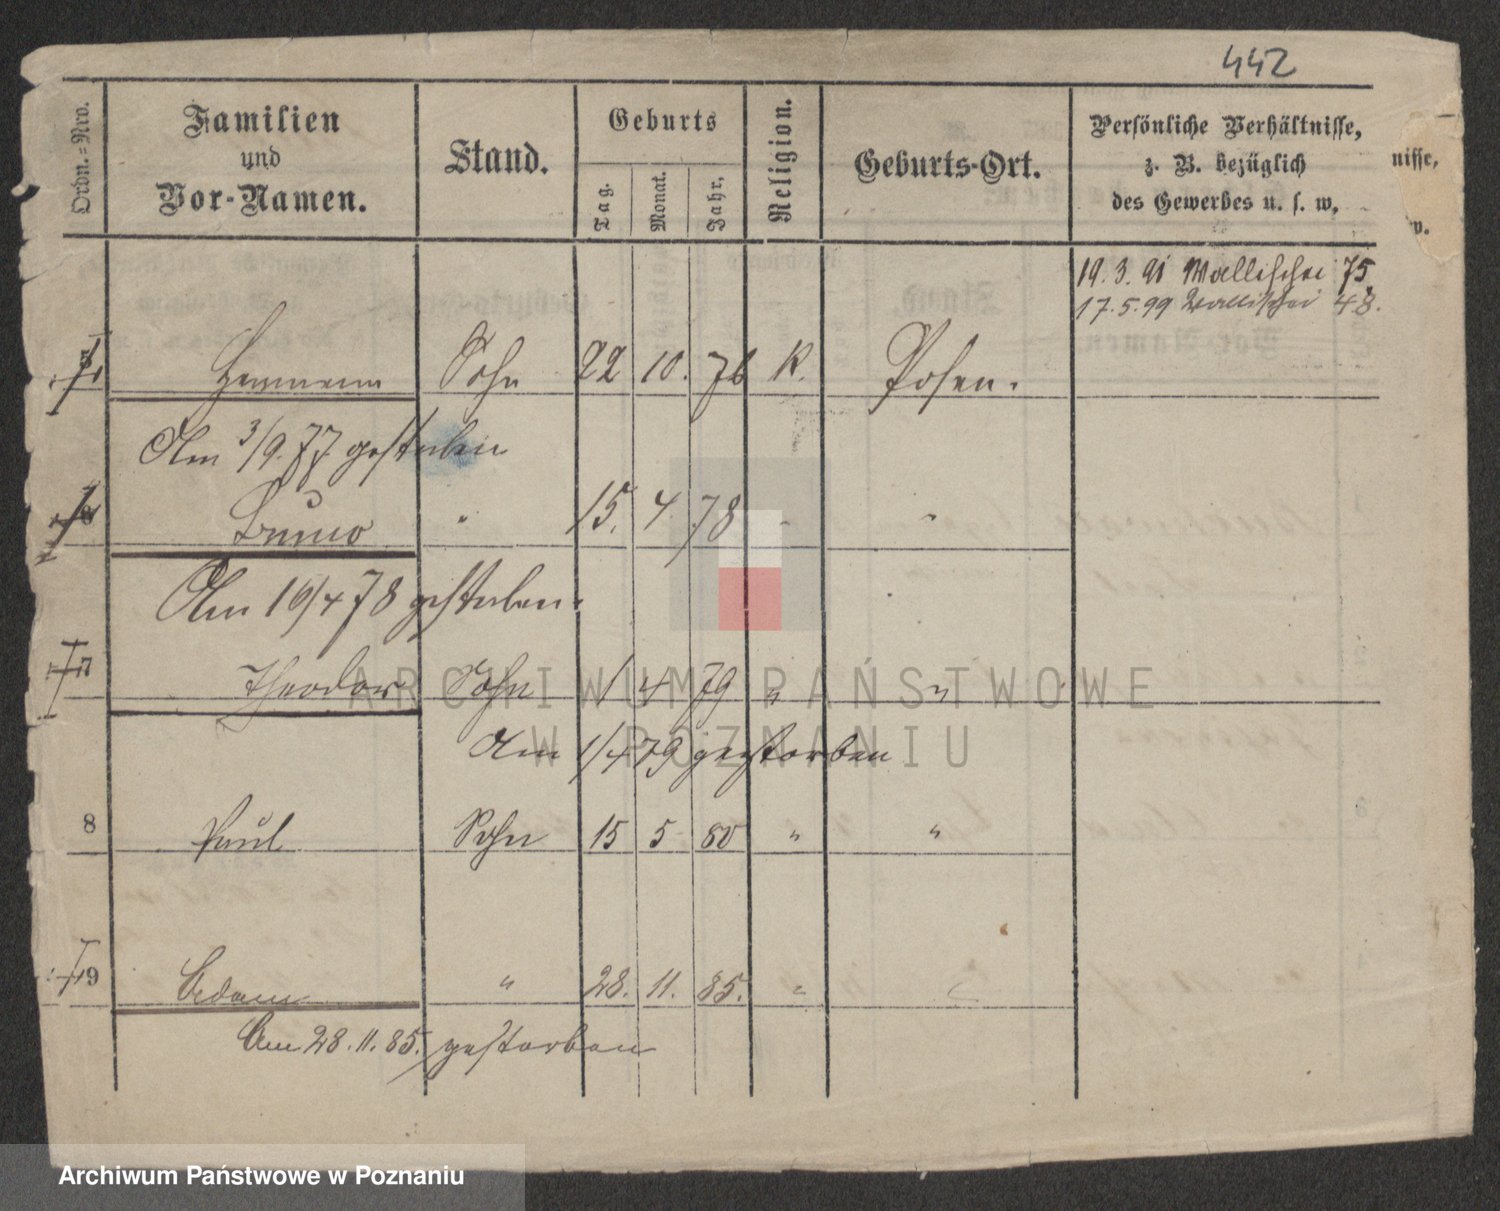 442
Ordn.=Nro.
Familien
und
Vor-Namen.
Stand.
Geburts
Tag.
Monat.
Jahr.
Religion.
Geburts-Ort.
Persönliche Verhältnisse,
z. B. bezüglich
des Gewerbes u. s. w.
nisse,
w.
19. 3. 91 Wallischei 75.
17. 5. 99 Wallischei 48.
Hermann Sohn 22 10. 76 K. Posen.
Am 3/9. 77 gestorben
Bruno " 15. 4 78 " "
Am 16/4 78 gestorben.
7 Theodor Sohn 1 4 79 " "
Am 1/4 79 gestorben
8 Paul Sohn 15 5 80 " "
9 Adam " 28. 11. 85. " "
Am 28. 11. 85. gestorben
ARCHIWUM PAŃSTWOWE
W POZNANIU
Archiwum Państwowe w Poznaniu